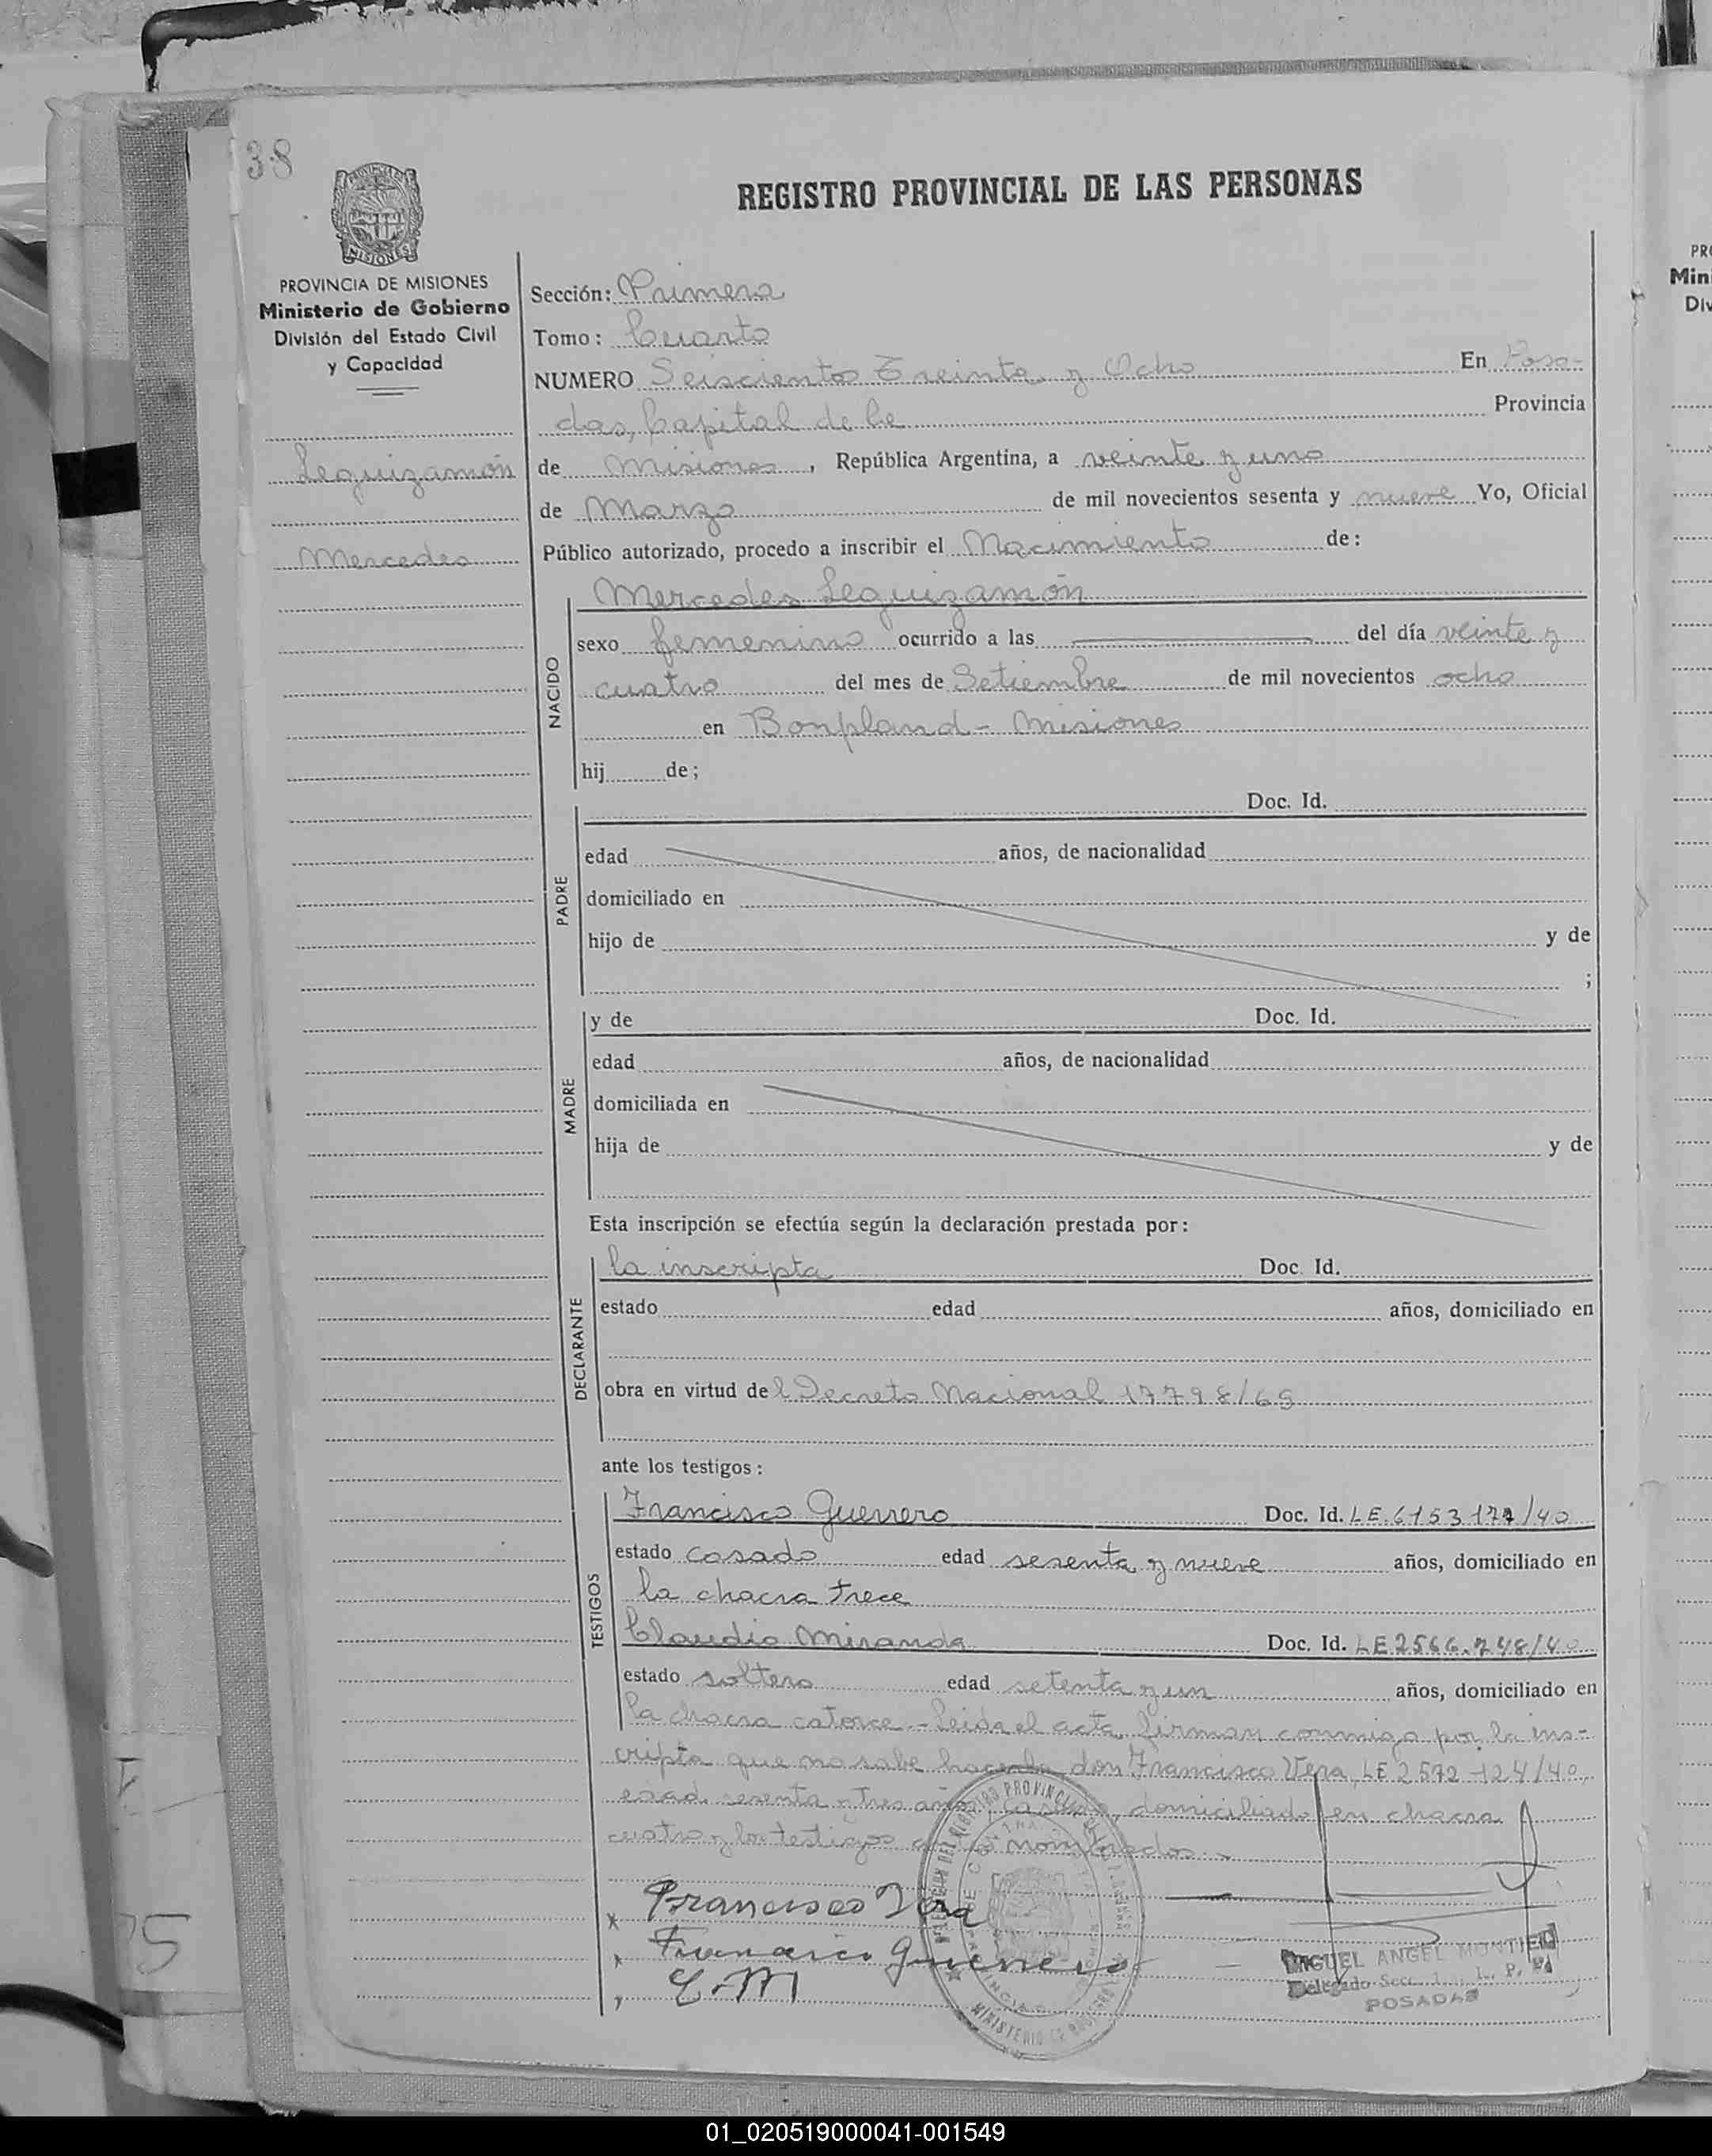 38
REGISTRO PROVINCIAL DE LAS PERSONAS
MISIONES
PROVINCIA DE MISIONES
Ministerio de Gobierno
División del Estado Civil
y Capacidad
Leguizamón
Mercedes
Sección: Primera
Tomo: Cuarto
NUMERO Seiscientos Treinta y Ocho En Posa-
das, Capital de la Provincia
de Misiones, República Argentina, a veinte y uno
de Marzo de mil novecientos sesenta y nueve Yo, Oficial
Público autorizado, procedo a inscribir el Nacimiento de:
NACIDO
Mercedes Leguizamón
sexo femenino ocurrido a las del día veinte y
cuatro del mes de Setiembre de mil novecientos ocho
en Bonpland - Misiones
hij de;
PADRE
Doc. Id.
edad años, de nacionalidad
domiciliado en
hijo de y de
;
MADRE
y de Doc. Id.
edad años, de nacionalidad
domiciliada en
hija de y de
Esta inscripción se efectúa según la declaración prestada por:
DECLARANTE
la inscripta Doc. Id.
estado edad años, domiciliado en
obra en virtud del Decreto Nacional 17798/69
ante los testigos:
TESTIGOS
Francisco Guerrero Doc. Id. LE.6153177/40
estado casado edad sesenta y nueve años, domiciliado en
la chacra trece
Claudio Miranda Doc. Id. LE 2566.748/40
estado soltero edad setenta y un años, domiciliado en
la chacra catorce.- Leida el acta, firman conmigo por la ins-
cripta que no sabe hacerlo don Francisco Vera, LE 2572-124/40,
edad sesenta y tres años, casado, domiciliado en chacra
cuatro y los testigos nombrados.-
Francisco Vera
Francisco Guerrero
C.M
MIGUEL ANGEL MONTIEL
Delegado Secc.
POSADAS
PR
Min
Div
75
01_020519000041-001549